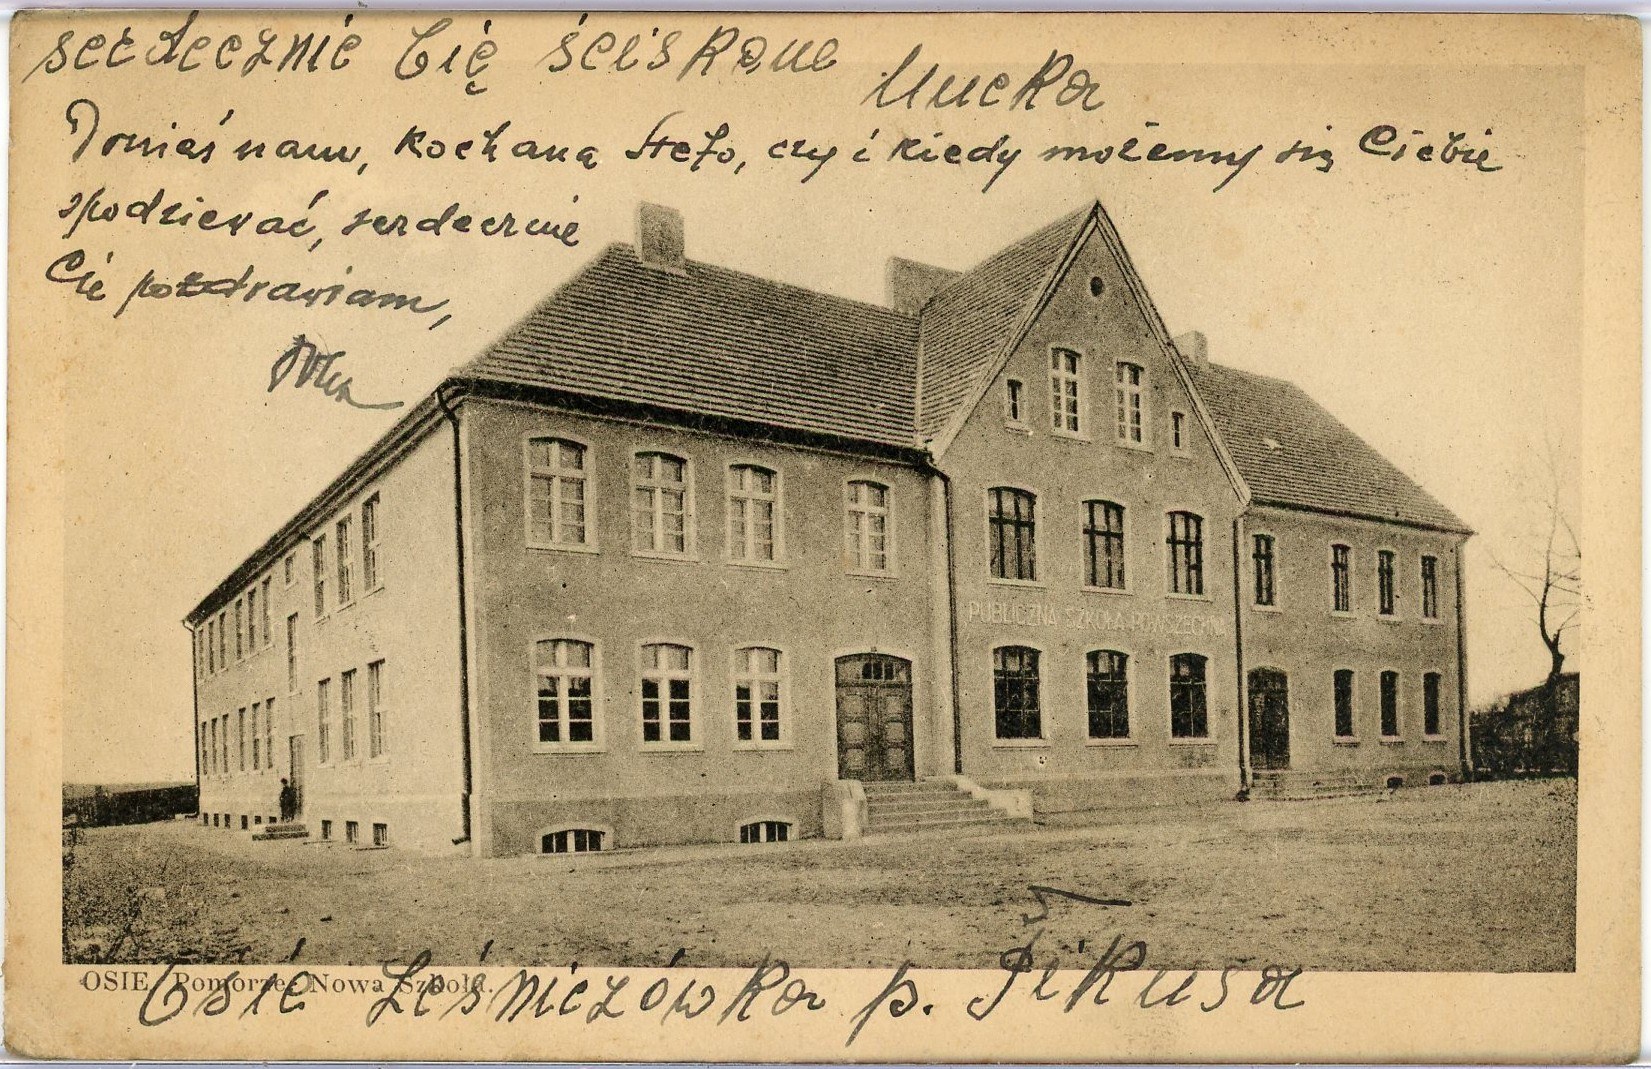 serdecznie Cię ściskam
Mucka
Donieś nam, kochana Stefo, czy i kiedy możemy się Ciebie
spodziewać, serdecznie
Cię pozdrawiam,
PUBLICZNA SZKOŁA POWSZECHNA
OSIE, Pomorze. Nowa Szkoła.
Osie Leśniczówka p. Pikusa